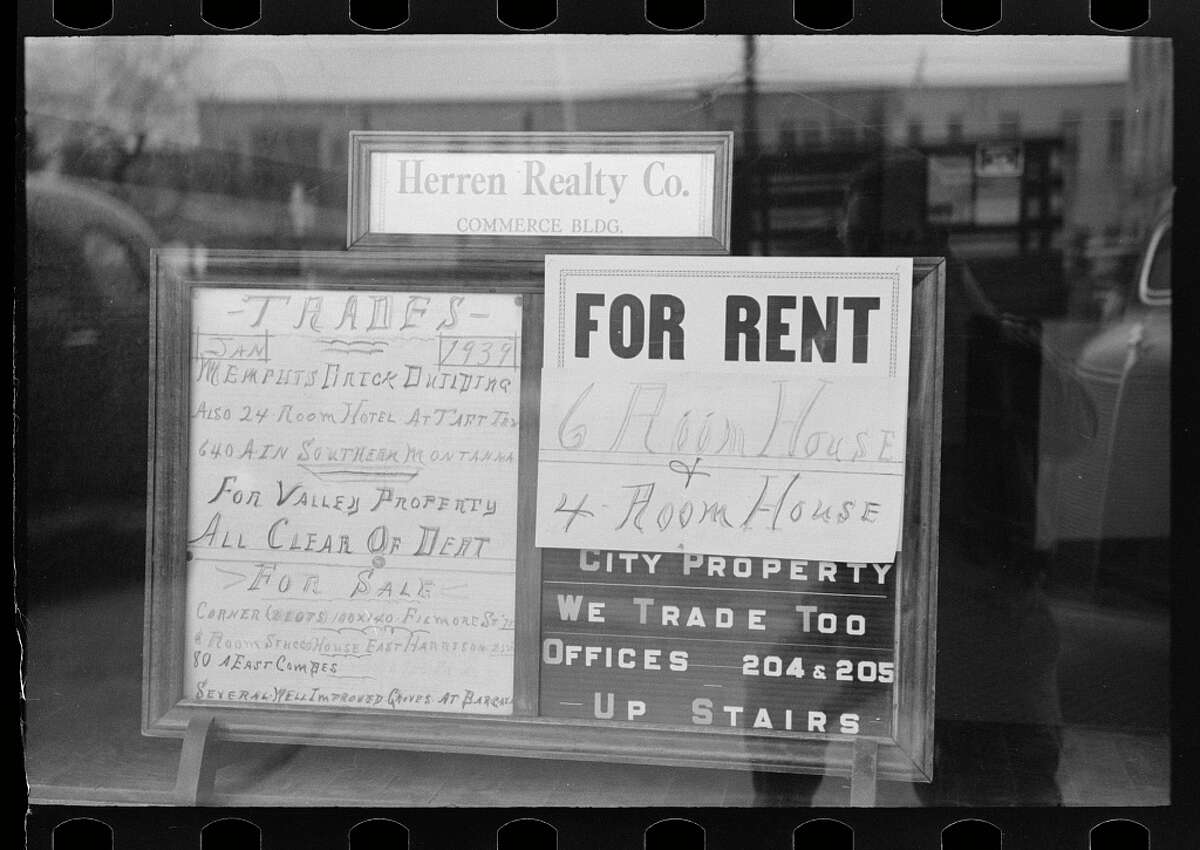 Herren Realty Co.
COMMERCE BLDG.
- TRADES -
JAN 1939
MEMPHIS BRICK BUILDING
ALSO 24-ROOM HOTEL AT TAFT TEX
640 A IN SOUTHERN MONTANNA
FOR VALLEY PROPERTY
ALL CLEAR OF DEBT
> FOR SALE <
CORNER (2 LOTS) 100X140-FILMORE ST
ROOM STUCCO HOUSE EAST HARRISON
80 A EAST COMBES
SEVERAL WELL IMPROVED GROVES AT
FOR RENT
6 ROOM HOUSE
&
4-ROOM HOUSE
CITY PROPERTY
WE TRADE TOO
OFFICES 204 & 205
UP STAIRS